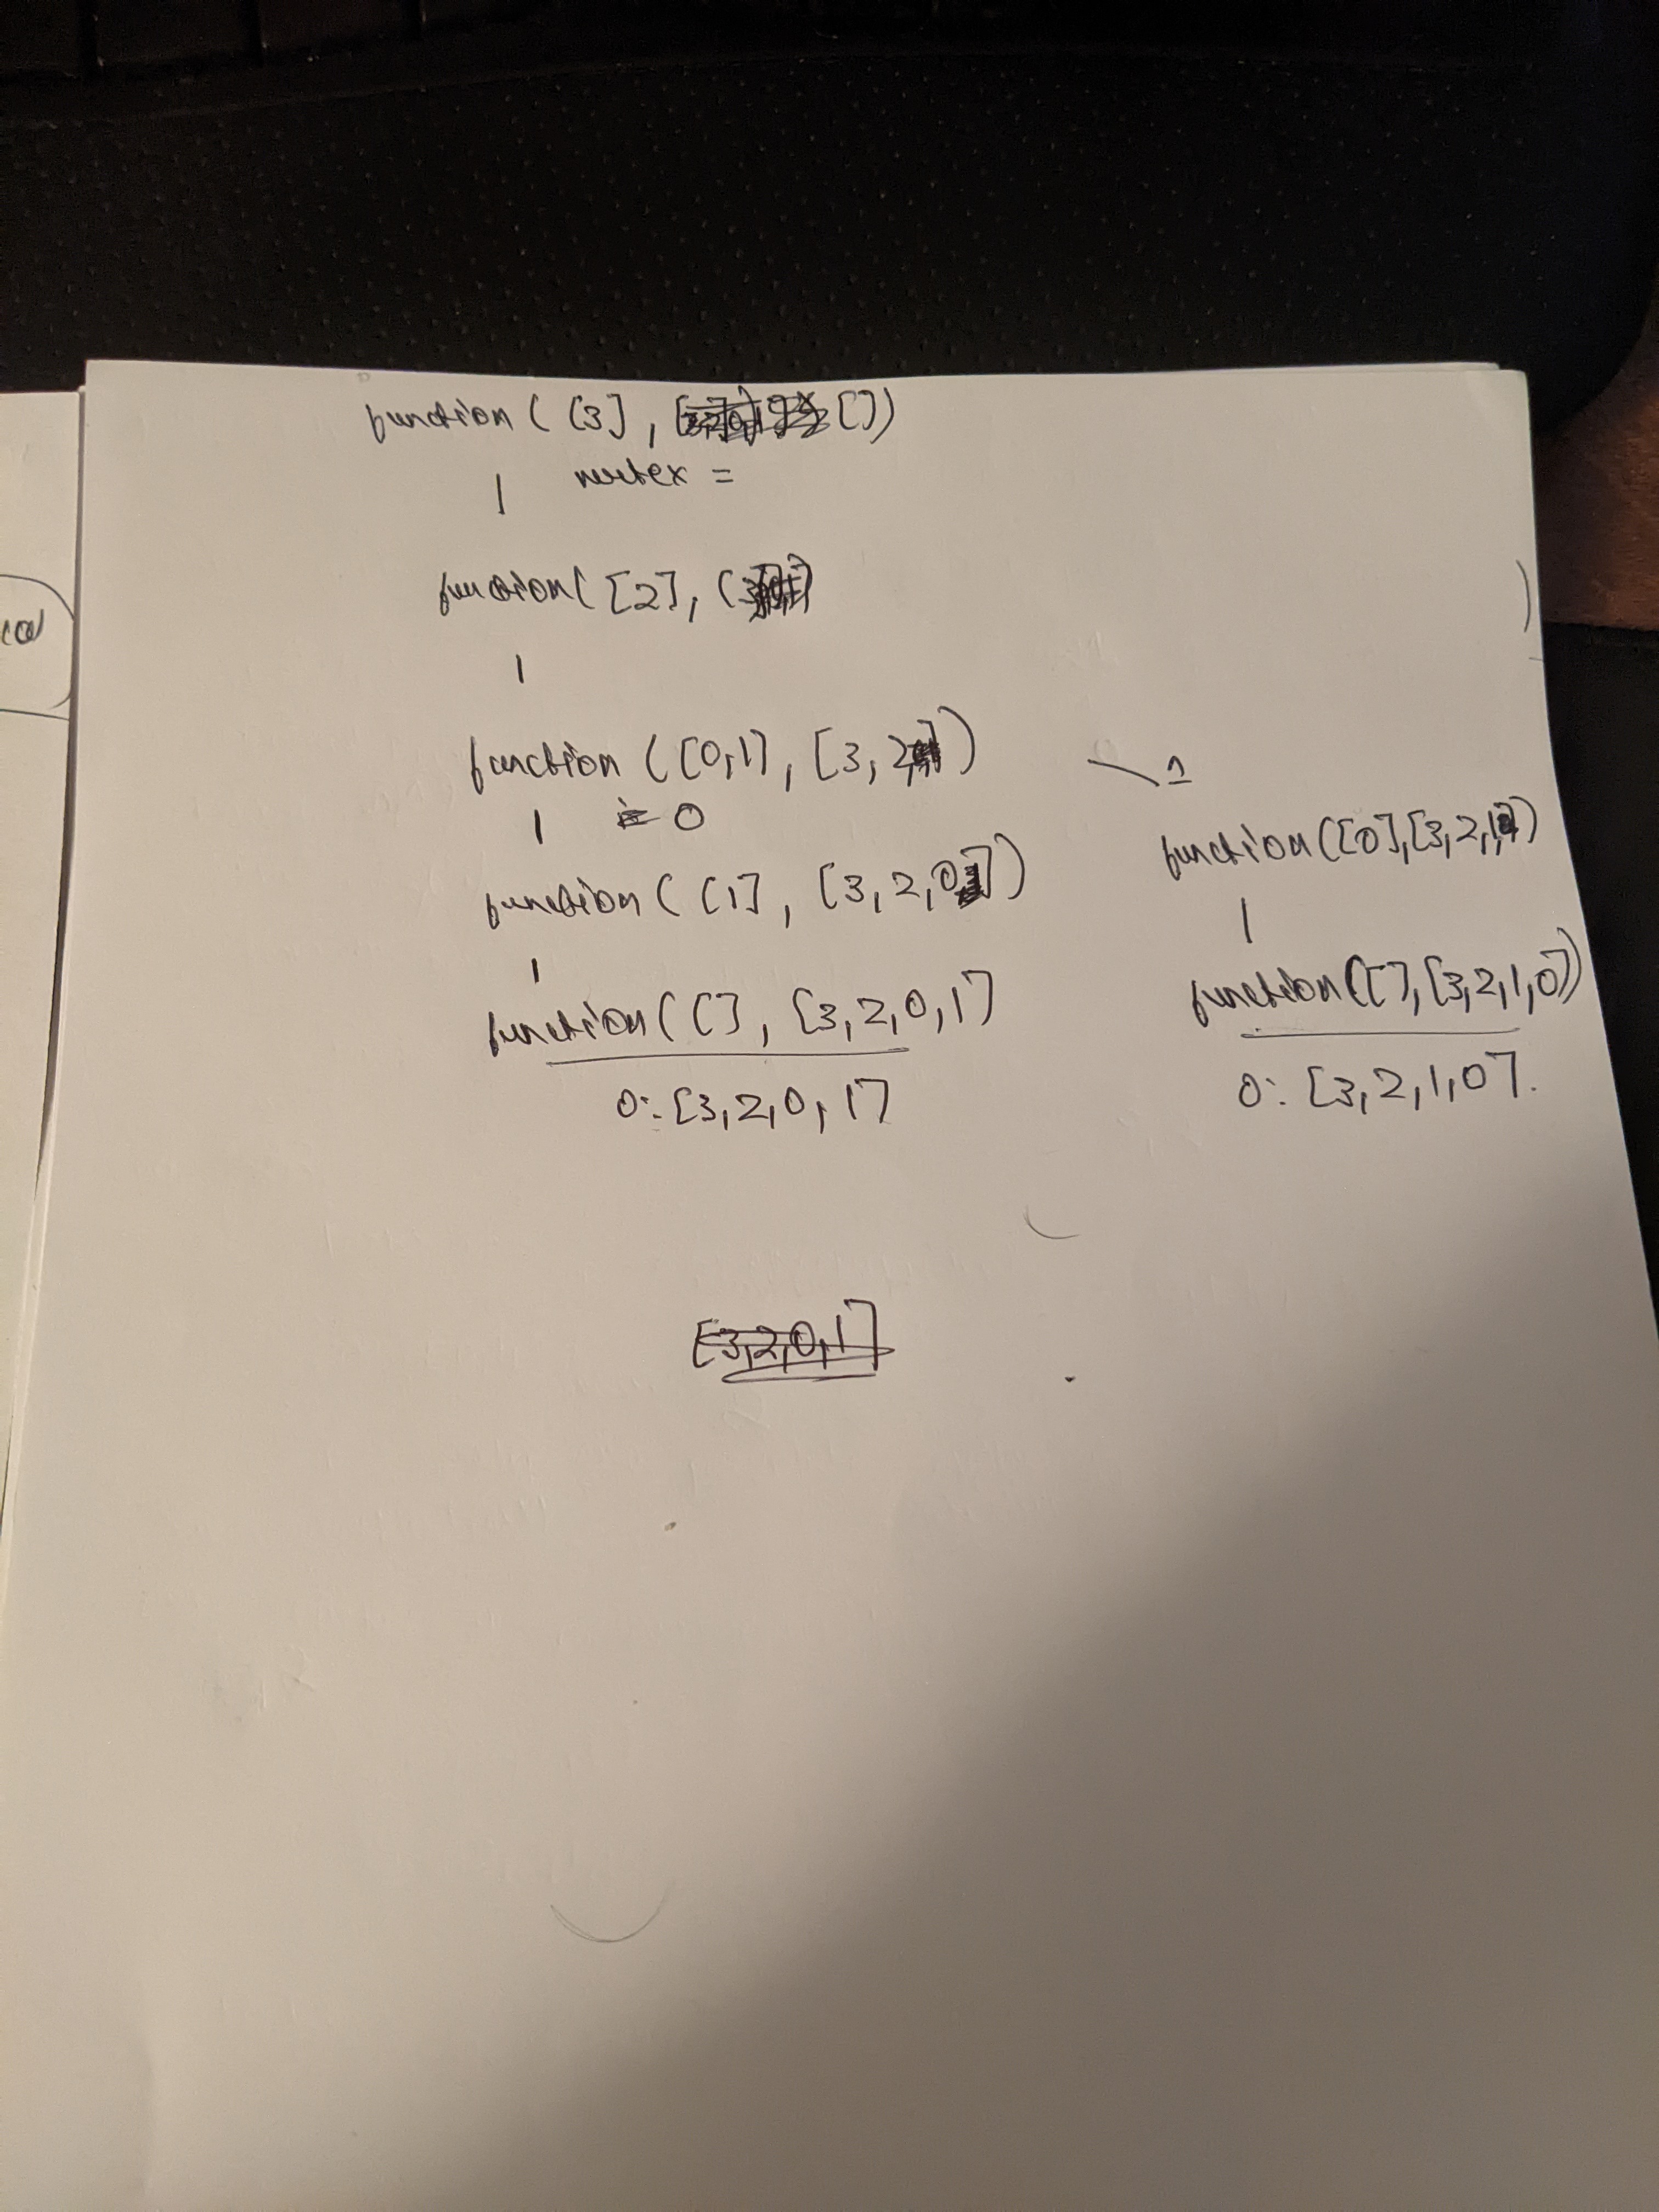 function ([3], [])
vertex =
function([2], (
function ([0,1], [3,2])
0
function ([1], [3,2,0])
function([], [3,2,0,1]
0: [3,2,0,1]
1
function([0],[3,2,1])
function([],[3,2,1,0])
0: [3,2,1,0].
[3,2,0,1]